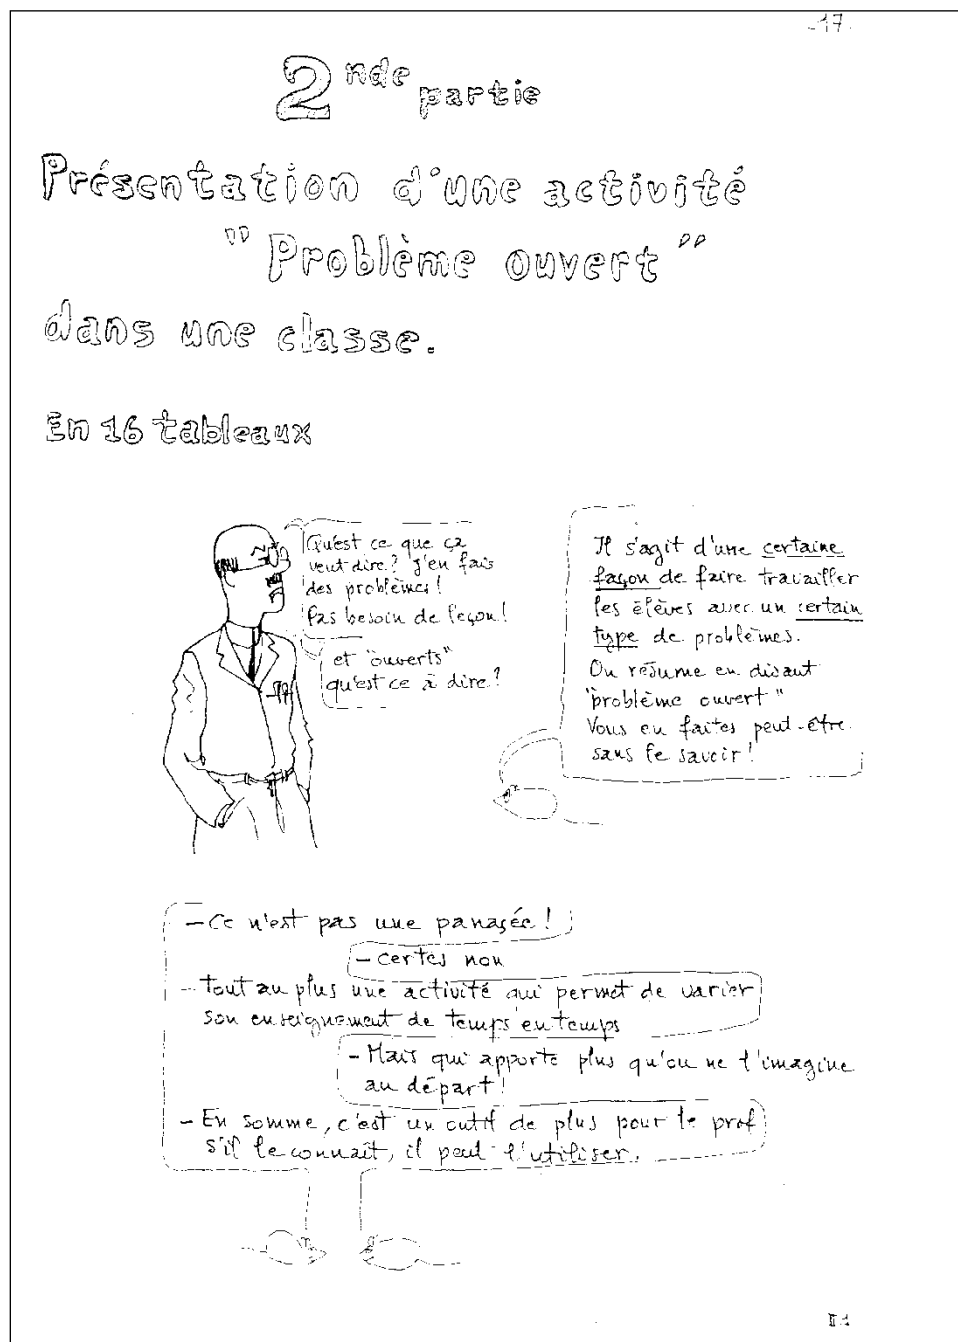 -17-
2nde partie
Présentation d'une activité
"Problème ouvert"
dans une classe.
En 16 tableaux
Qu'est ce que ça
veut dire? J'en fais
des problèmes!
Pas besoin de leçon!
et "ouverts"
qu'est ce à dire?
Il s'agit d'une certaine
façon de faire travailler
les élèves avec un certain
type de problèmes.
On résume en disant
"problème ouvert"
Vous en faites peut-être
sans le savoir!
- Ce n'est pas une panacée!
- Certes non
- Tout au plus une activité qui permet de varier
son enseignement de temps en temps
- Mais qui apporte plus qu'on ne l'imagine
au départ!
- En somme, c'est un outil de plus pour le prof
s'il le connaît, il peut l'utiliser.
II 1